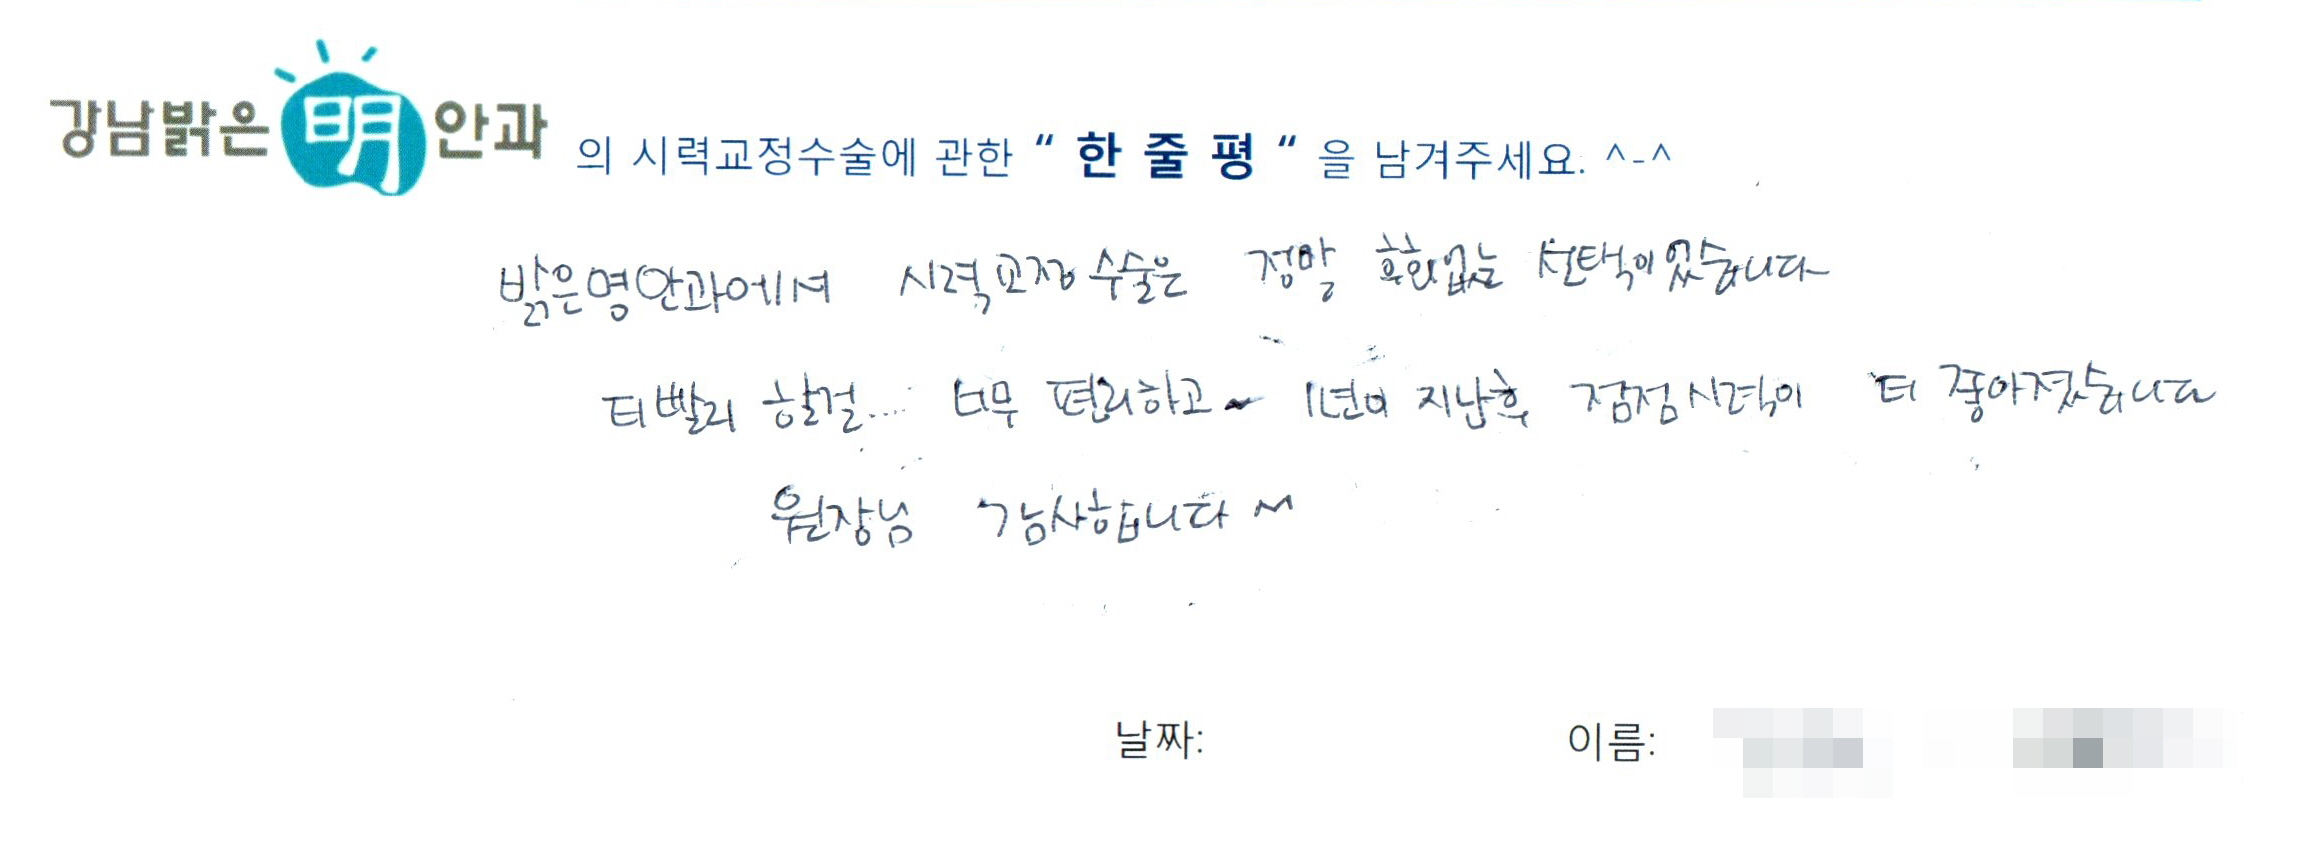 강남밝은明안과 의 시력교정수술에 관한 “ 한 줄 평 “ 을 남겨주세요. ^-^
밝은명안과에서 시력교정수술은 정말 후회없는 선택이었습니다
더빨리 할걸.... 너무 편리하고~ 1년이 지난후 점점시력이 더 좋아졌습니다
원장님 감사합니다 ^^
날짜: 이름: